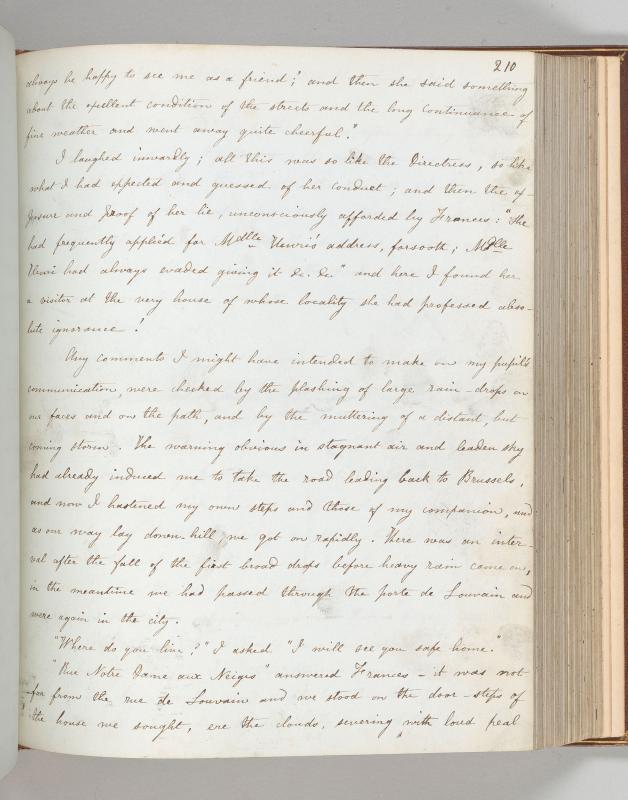 210
always be happy to see me as a friend; and then she said something
about the excellent condition of the streets and the long continuance of
fine weather and went away quite cheerful."
I laughed inwardly; all this was so like the Directress, so like
what I had expected and guessed of her conduct; and then the ex-
posure and proof of her lie, unconsciously afforded by Frances: "She
had frequently applied for Mdlle Henri's address, forsooth; Mdlle
Henri had always evaded giving it &c. &c." and here I found her
a visitor at the very house of whose locality she had professed abso-
lute ignorance!
Any comments I might have intended to make on my pupil's
communication, were checked by the plashing of large rain-drops on
our faces and on the path, and by the muttering of a distant, but
coming storm. The warning obvious in stagnant air and leaden sky
had already induced me to take the road leading back to Brussels,
and now I hastened my own steps and those of my companion, and
as our way lay down-hill, we got on rapidly. There was an inter-
val after the fall of the first broad drops before heavy rain came on,
in the meantime we had passed through the porte de Louvain and
were again in the city.
"Where do you live?" I asked "I will see you safe home."
"Rue Notre Dame aux Neiges" answered Frances - it was not
far from the rue de Louvain and we stood on the door-steps of
the house we sought, ere the clouds, severing with loud peal